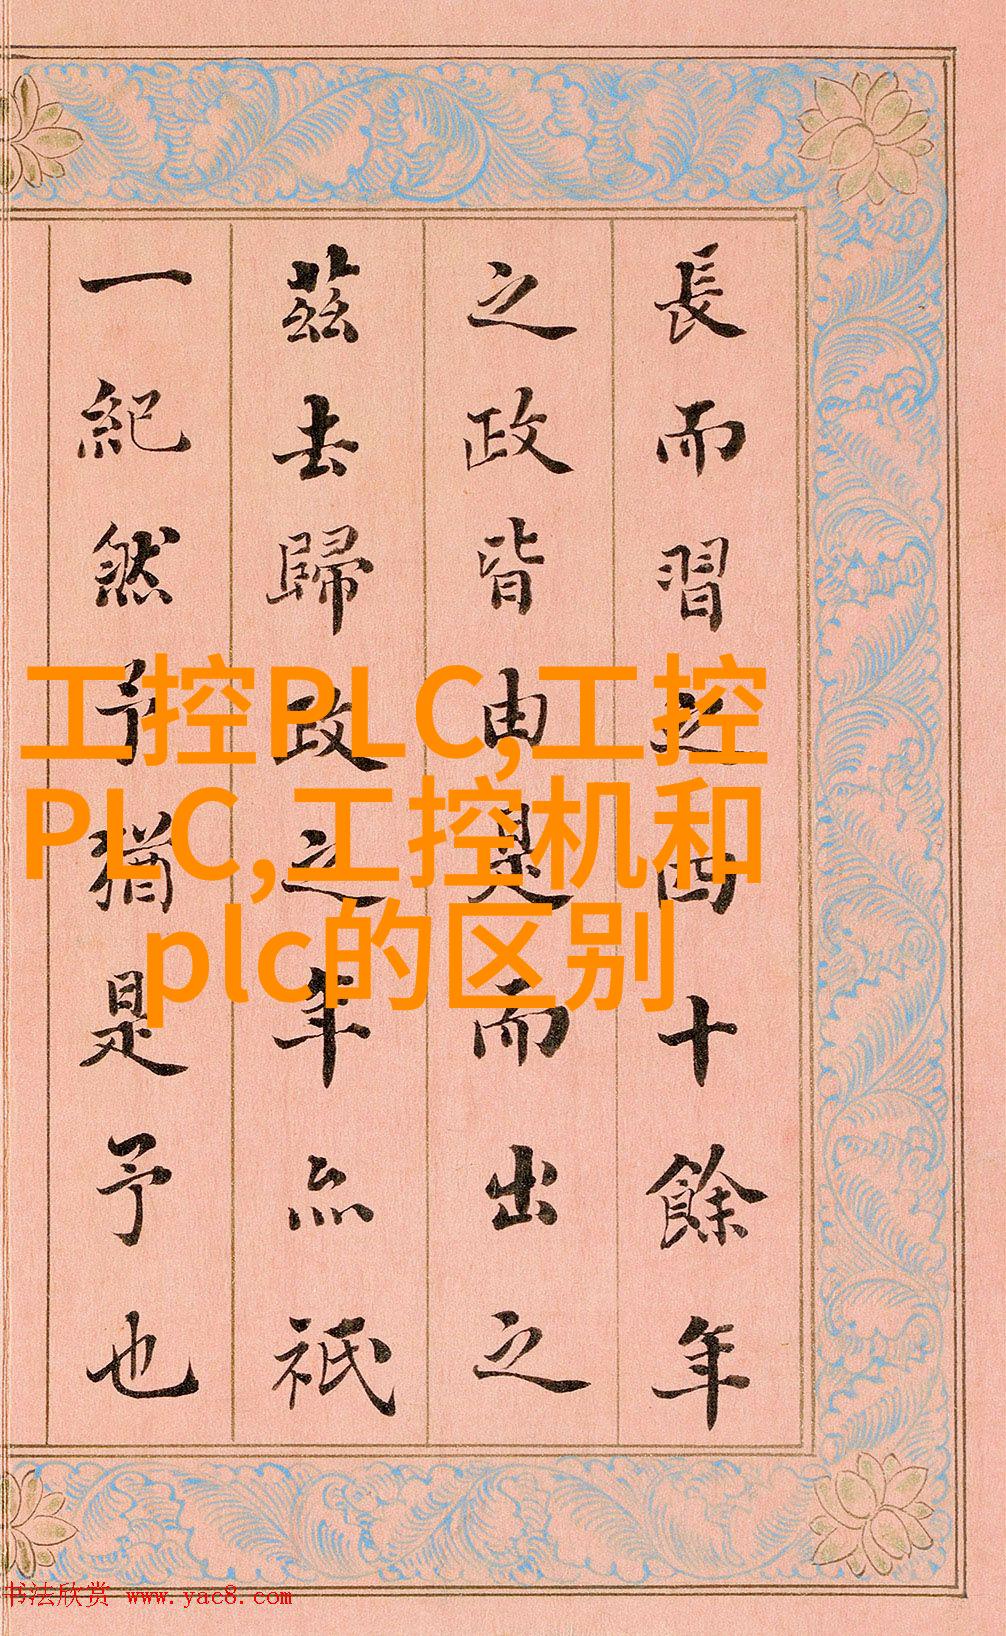 長而習之四十餘年
之政皆由是而出之
茲去歸政之年亦祇
一紀然予猶是予也
工控PLC,工控
PLC,工控机和
plc的区别
书法欣赏 www.yac8.com